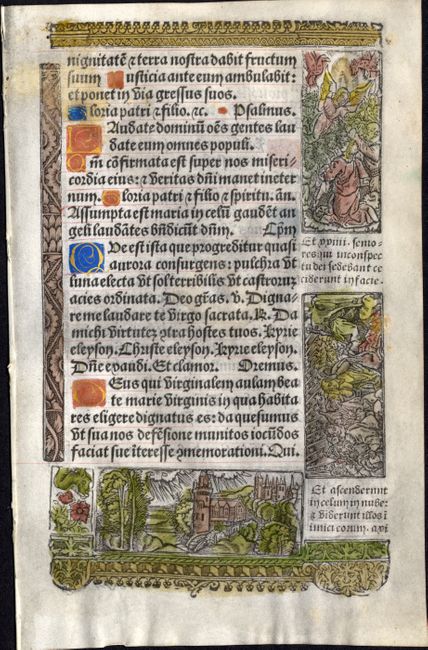 nignitatē & terra nostra dabit fructum
suum Iusticia ante eum ambulabit:
et ponet in via gressus suos.
Gloria patri & filio. &c. Psalmus.
Laudate dominū oēs gentes lau
date eum omnes populi.
Qm̄ cōfirmata est super nos miseri-
cordia eius: & veritas dn̄i manet in eter
num. Gloria patri & filio & spiritu. an̄.
Assumpta est maria in celū gaudēt an
geli laudātes bn̄dicūt dn̄m. Cp̄m
Que est ista que progreditur quasi
aurora consurgens: pulchra vt
luna electa vt sol terribilis vt castrorū
acies ordinata. Deo gr̄as. v. Digna-
re me laudare te virgo sacrata. R. Da
michi virtutē ꝯtra hostes tuos. Kyrie
eleyson. Christe eleyson. Kyrie eleyson.
Dn̄e exaudi. Et clamor. Oremus.
Deus qui virginalem aulam bea
te marie virginis in qua habita
res eligere dignatus es: da quesumus
vt sua nos defēsione munitos iocūdos
faciat sue īteresse ꝯmemorationi. Qui.
Et xxiiii. senio-
res qui in conspec
tu dei sedebant ce
ciderunt in facie.
Et ascenderunt
in celum in nube:
& viderunt illos i
imici eorum. a.xi